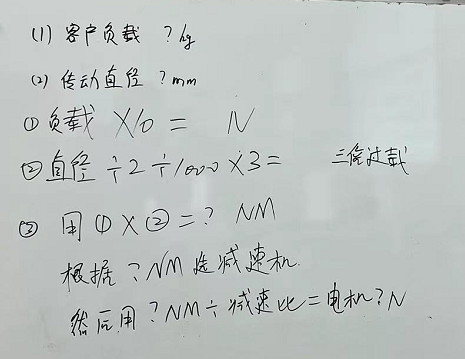 (1) 客户负载 ?kg
(2) 传动直径 ?mm
① 负载 X10 = N
② 直径÷2÷1000×3= 三倍过载
③ 用①X②=? NM
根据?NM选减速机.
然后用?NM÷减速比=电机?N